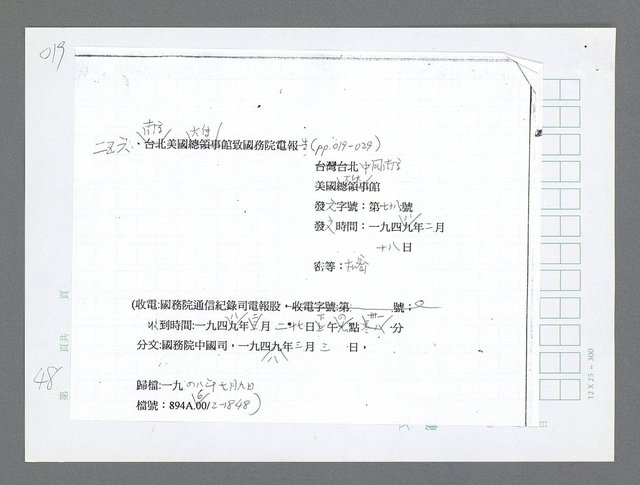 019
二五六、台北美國總領事館致國務院電報 (pp.019-029)
南京 大使
台灣台北 中國南京
美國總領事館
大使
發文字號：第七十八號
發文時間：一九四九年二月
八
十八日
密等：
(收電:國務院通信紀錄司電報股，收電字號:第 號；
收到時間:一九四九年 月 二十七日 午 點 分
分文:國務院中國司，一九四九年三月三 日，
八
歸檔:一九四八年七月九日
檔號：894A.00/2-1848)
頁
頁共
第
48
12 X 25 = 300